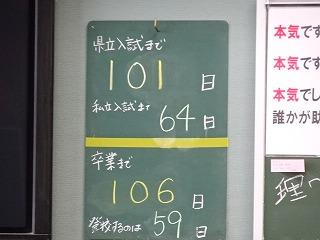 県立入試まで
101日
私立入試まで
64日
卒業まで
106日
登校するのは
59日
本気です
本気です
本気でし
誰かが助
理